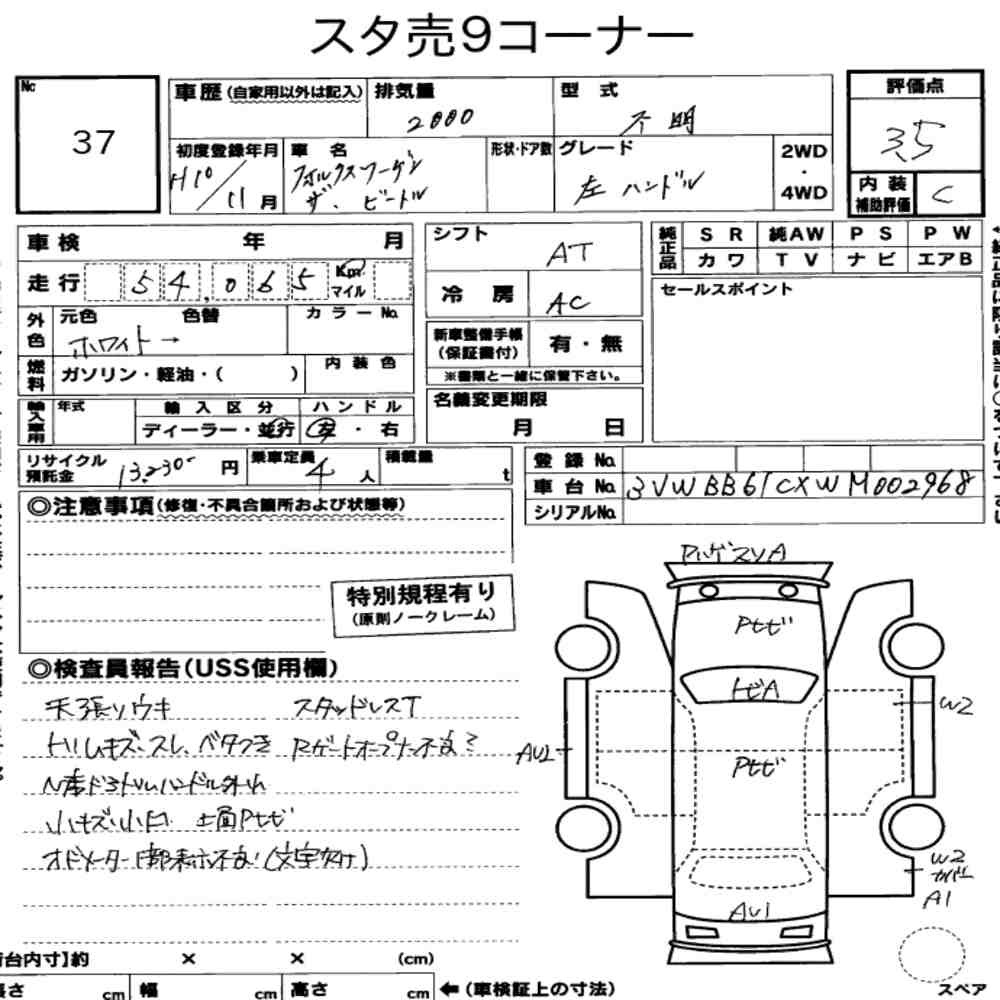 スタ売9コーナー
No 37
車歴(自家用以外は記入)
排気量 2000
型式 不明
評価点 3.5
初度登録年月 H10/11月
車名 フォルクスワーゲン ザ・ビートル
形状・ドア数
グレード 左ハンドル
2WD・4WD
内装補助評価 C
車検 年 月
走行 54,065 Km マイル
外色 元色 ホワイト→ 色替
カラーNo.
燃料 ガソリン・軽油・( )
内装色
輸入車用 年式
輸入区分 ディーラー・並行
ハンドル 左・右
リサイクル預託金 13,230 円
乗車定員 4人
積載量 t
シフト AT
冷房 AC
新車整備手帳(保証書付) 有・無
※書類と一緒に保管下さい。
名義変更期限 月 日
純正品 SR 純AW PS PW
カワ TV ナビ エアB
セールスポイント
登録No.
車台No. 3VWBB61CXWM002968
シリアルNo.
◎注意事項(修復・不具合箇所および状態等)
特別規程有り
(原則ノークレーム)
◎検査員報告(USS使用欄)
天張ソウキ スタッドレスT
トリムキズ、スレ、ベタつき Rゲートオープナー不良?
N席ドアトリムハンドル外れ
小キズ小凹 上面Pトビ
オドメーター1部表示不良!(文字欠け)
PハゲスリA
Pトビ
トビA
W2
AU1
Pトビ
W2
カバー
A1
AU1
スペア
荷台内寸】約 × × (cm)
長さ cm 幅 cm 高さ cm ←(車検証上の寸法)